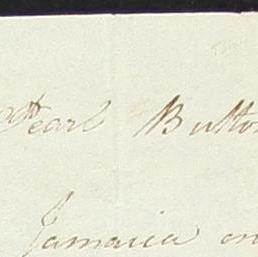 Pearl Button
Jamaica on